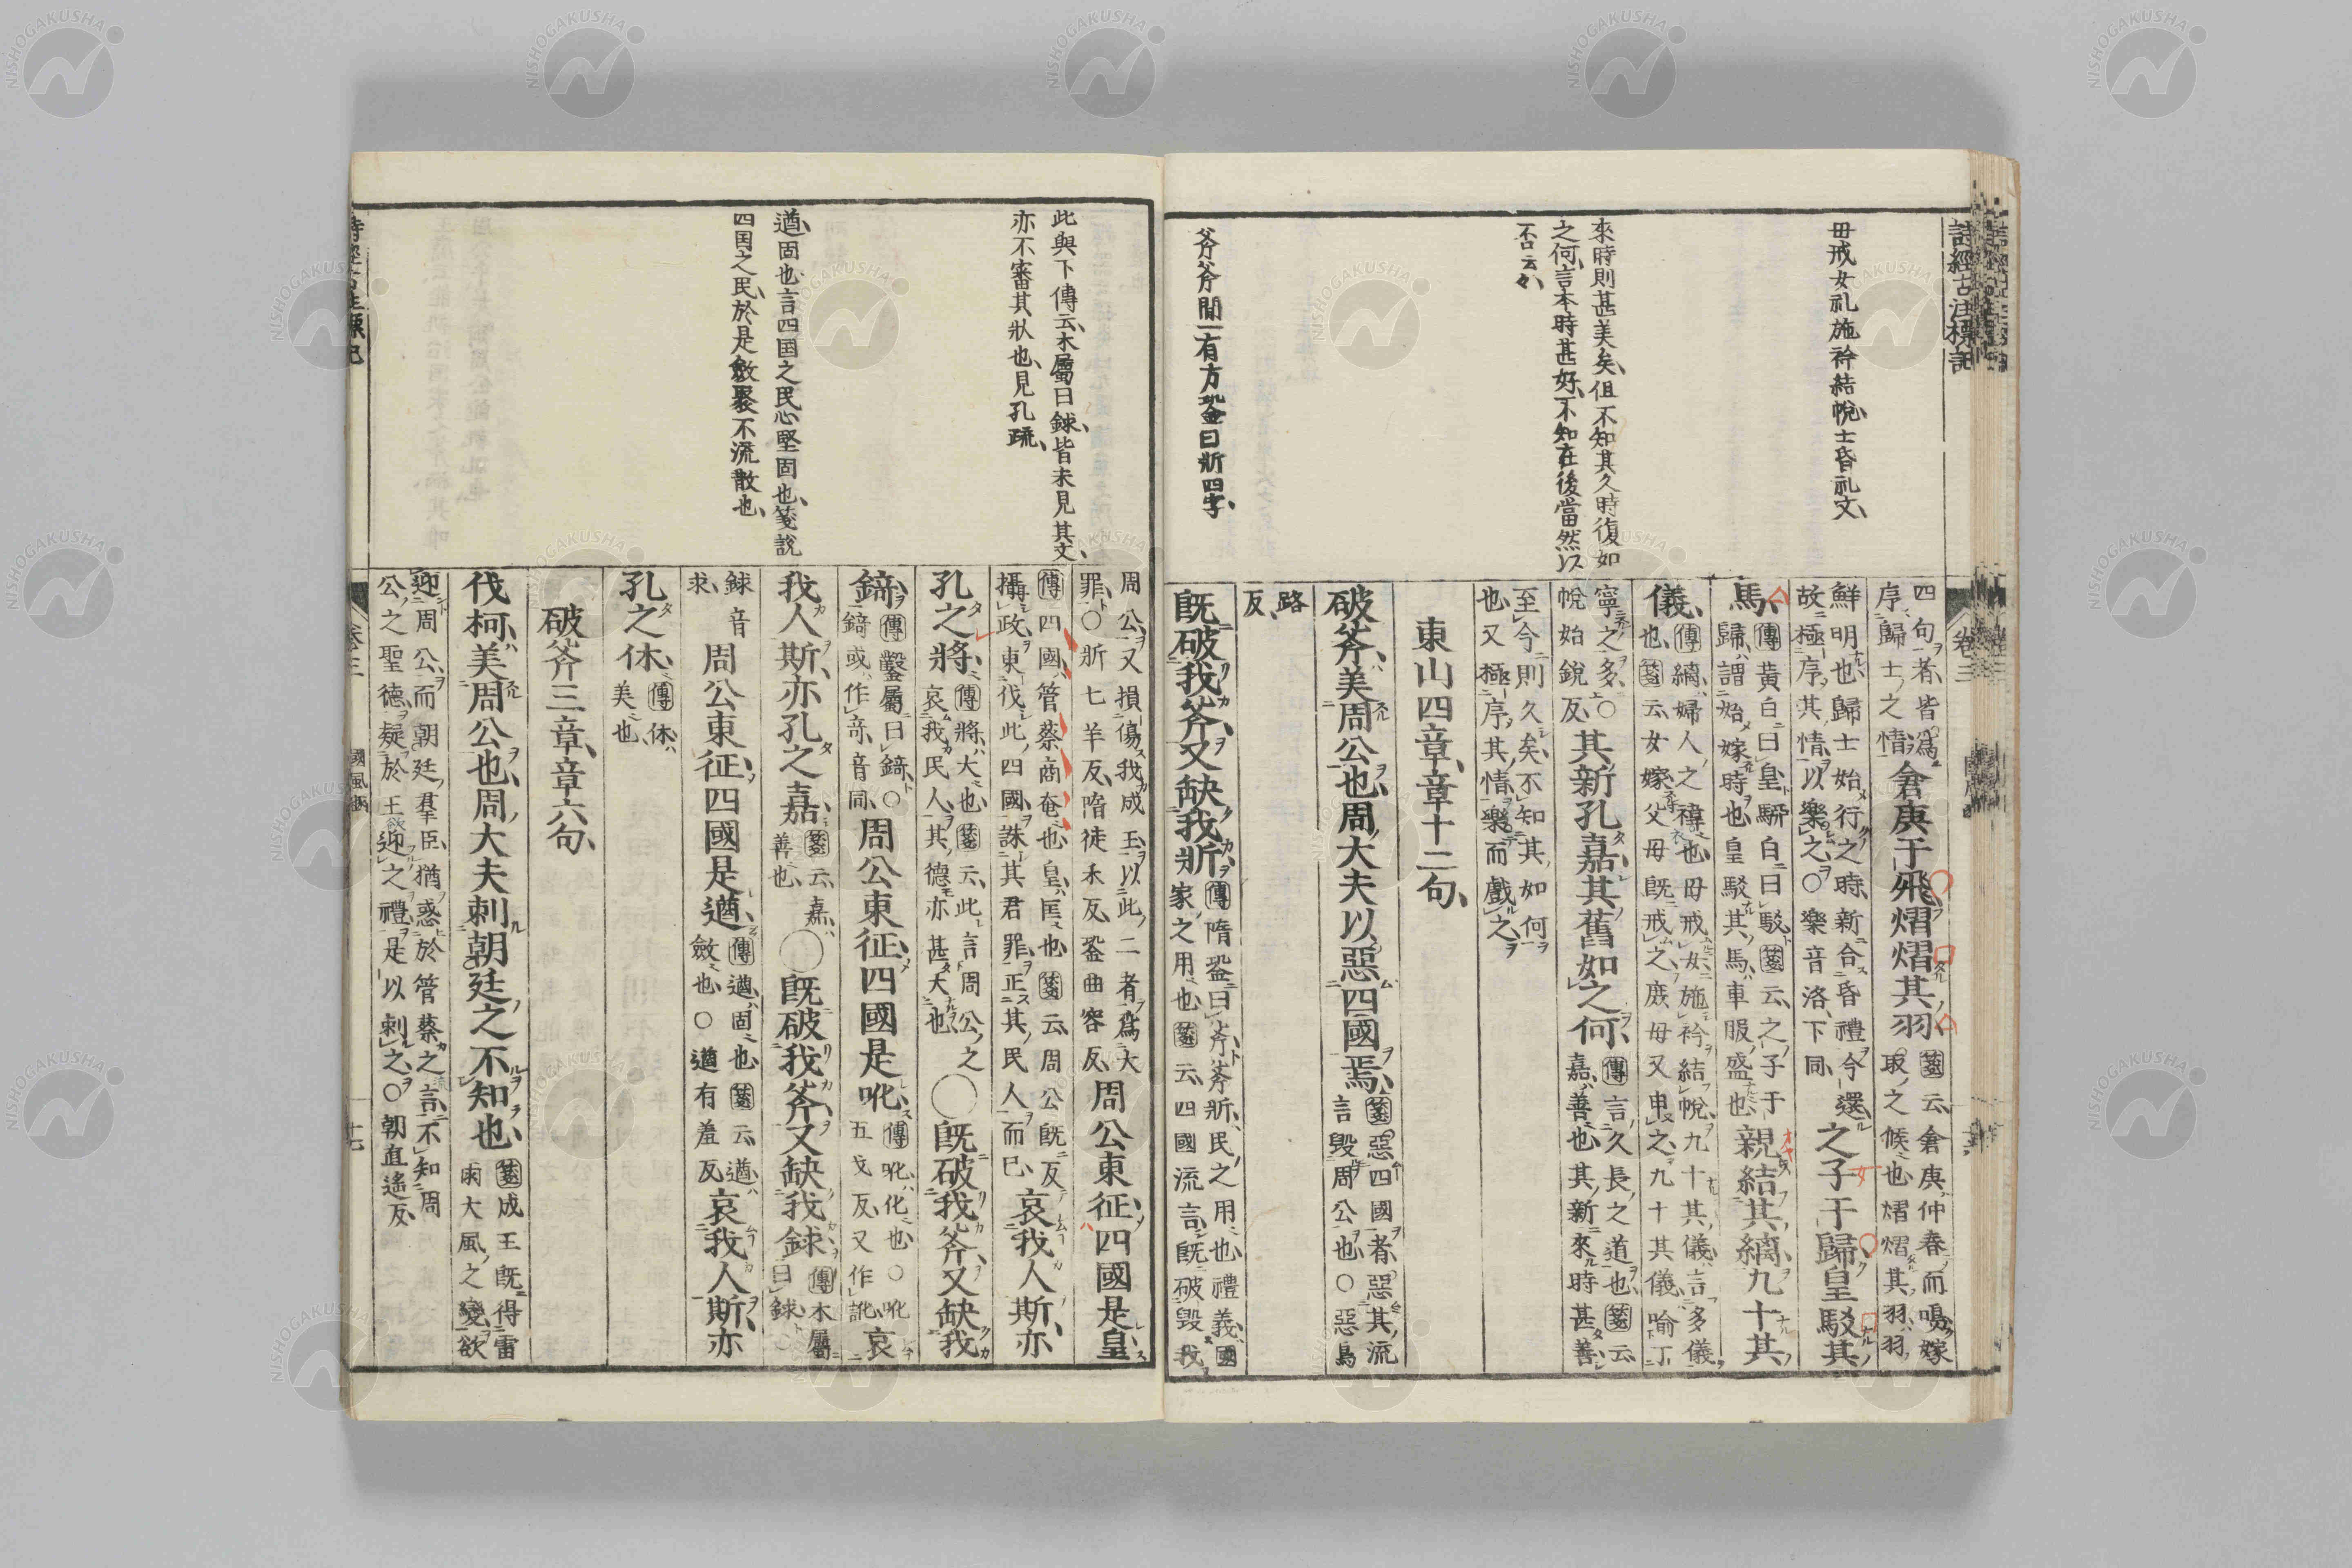 詩經古注標記
毋戒女礼施衿結帨士昏礼文
來時則甚美矣但不知其久時復如
之何言本時甚好不知在後當然以
不云々
斧斧閒一有方銎曰斨四字
卷三
四句者皆爲
序歸士之情
倉庚于飛熠熠其羽
箋云倉庚仲春而鳴嫁
取之候也熠熠其羽羽
鮮明也歸士始行之時新合昏禮今還
故極序其情以樂之○樂音洛下同
之子于歸皇駁其
馬
傳黄白曰皇駵白曰駁箋云之子于
歸謂始嫁時也皇駁其馬車服盛也
親結其縭九十其
儀
傳縭婦人之褘也毋戒女施衿結帨九十其儀言多儀
也箋云女嫁父母既戒之庶母又申之九十其儀喻丁
寧之多○
帨始銳反
其新孔嘉其舊如之何
傳言久長之道也箋云
嘉善也其新來時甚善
至今則久矣不知其如何
也又極序其情樂而戲之
東山四章章十二句
破斧美周公也周大夫以惡四國焉
箋惡四國者惡其流
言毀周公也○惡烏
路
反
既破我斧又缺我斨
傳隋銎曰斧斧斨民之用也禮義國
家之用也箋云四國流言既破毀我
此與下傳云木屬曰銶皆未見其文
亦不審其狀也見孔疏
遒固也言四国之民心堅固也箋說
四国之民於是斂聚不流散也
周公又損傷我成王以此二者爲大
罪○斨七羊反隋徒禾反銎曲容反
周公東征四國是皇
傳四國管蔡商奄也皇匡也箋云周公既反
攝政東伐此四國誅其君罪正其民人而已
哀我人斯亦
孔之將
傳將大也箋云此言周公之
哀我民人其德亦甚大也
○既破我斧又缺我
錡
傳鑿屬曰錡○
錡或作奇音同
周公東征四國是吪
傳吪化也○吪
五戈反又作訛
哀
我人斯亦孔之嘉
箋云嘉
善也
○既破我斧又缺我銶
傳木屬
曰銶○
銶音
求
周公東征四國是遒
傳遒固也箋云遒
斂也○遒有羞反
哀我人斯亦
孔之休
傳休
美也
破斧三章章六句
伐柯美周公也周大夫刺朝廷之不知也
箋成王既得雷
雨大風之變欲
迎周公而朝廷羣臣猶惑於管蔡之言不知周
公之聖德疑於王迎之禮是以刺之○朝直遙反
卷三
國風豳
十七